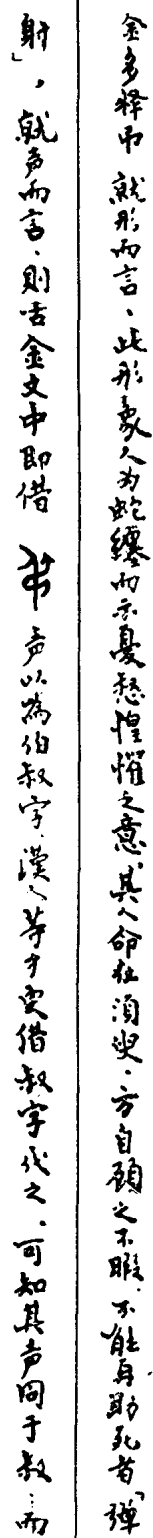 金多釋弔。就形而言、此形象人为蛇纏而示憂愁惶懼之意。其人命在須臾、方自顧之不暇、不能再助死者「彈
射」，就声而言、則古金文中即借 声以為伯叔字、漢人等才更借叔字代之、可知其声同于叔、而